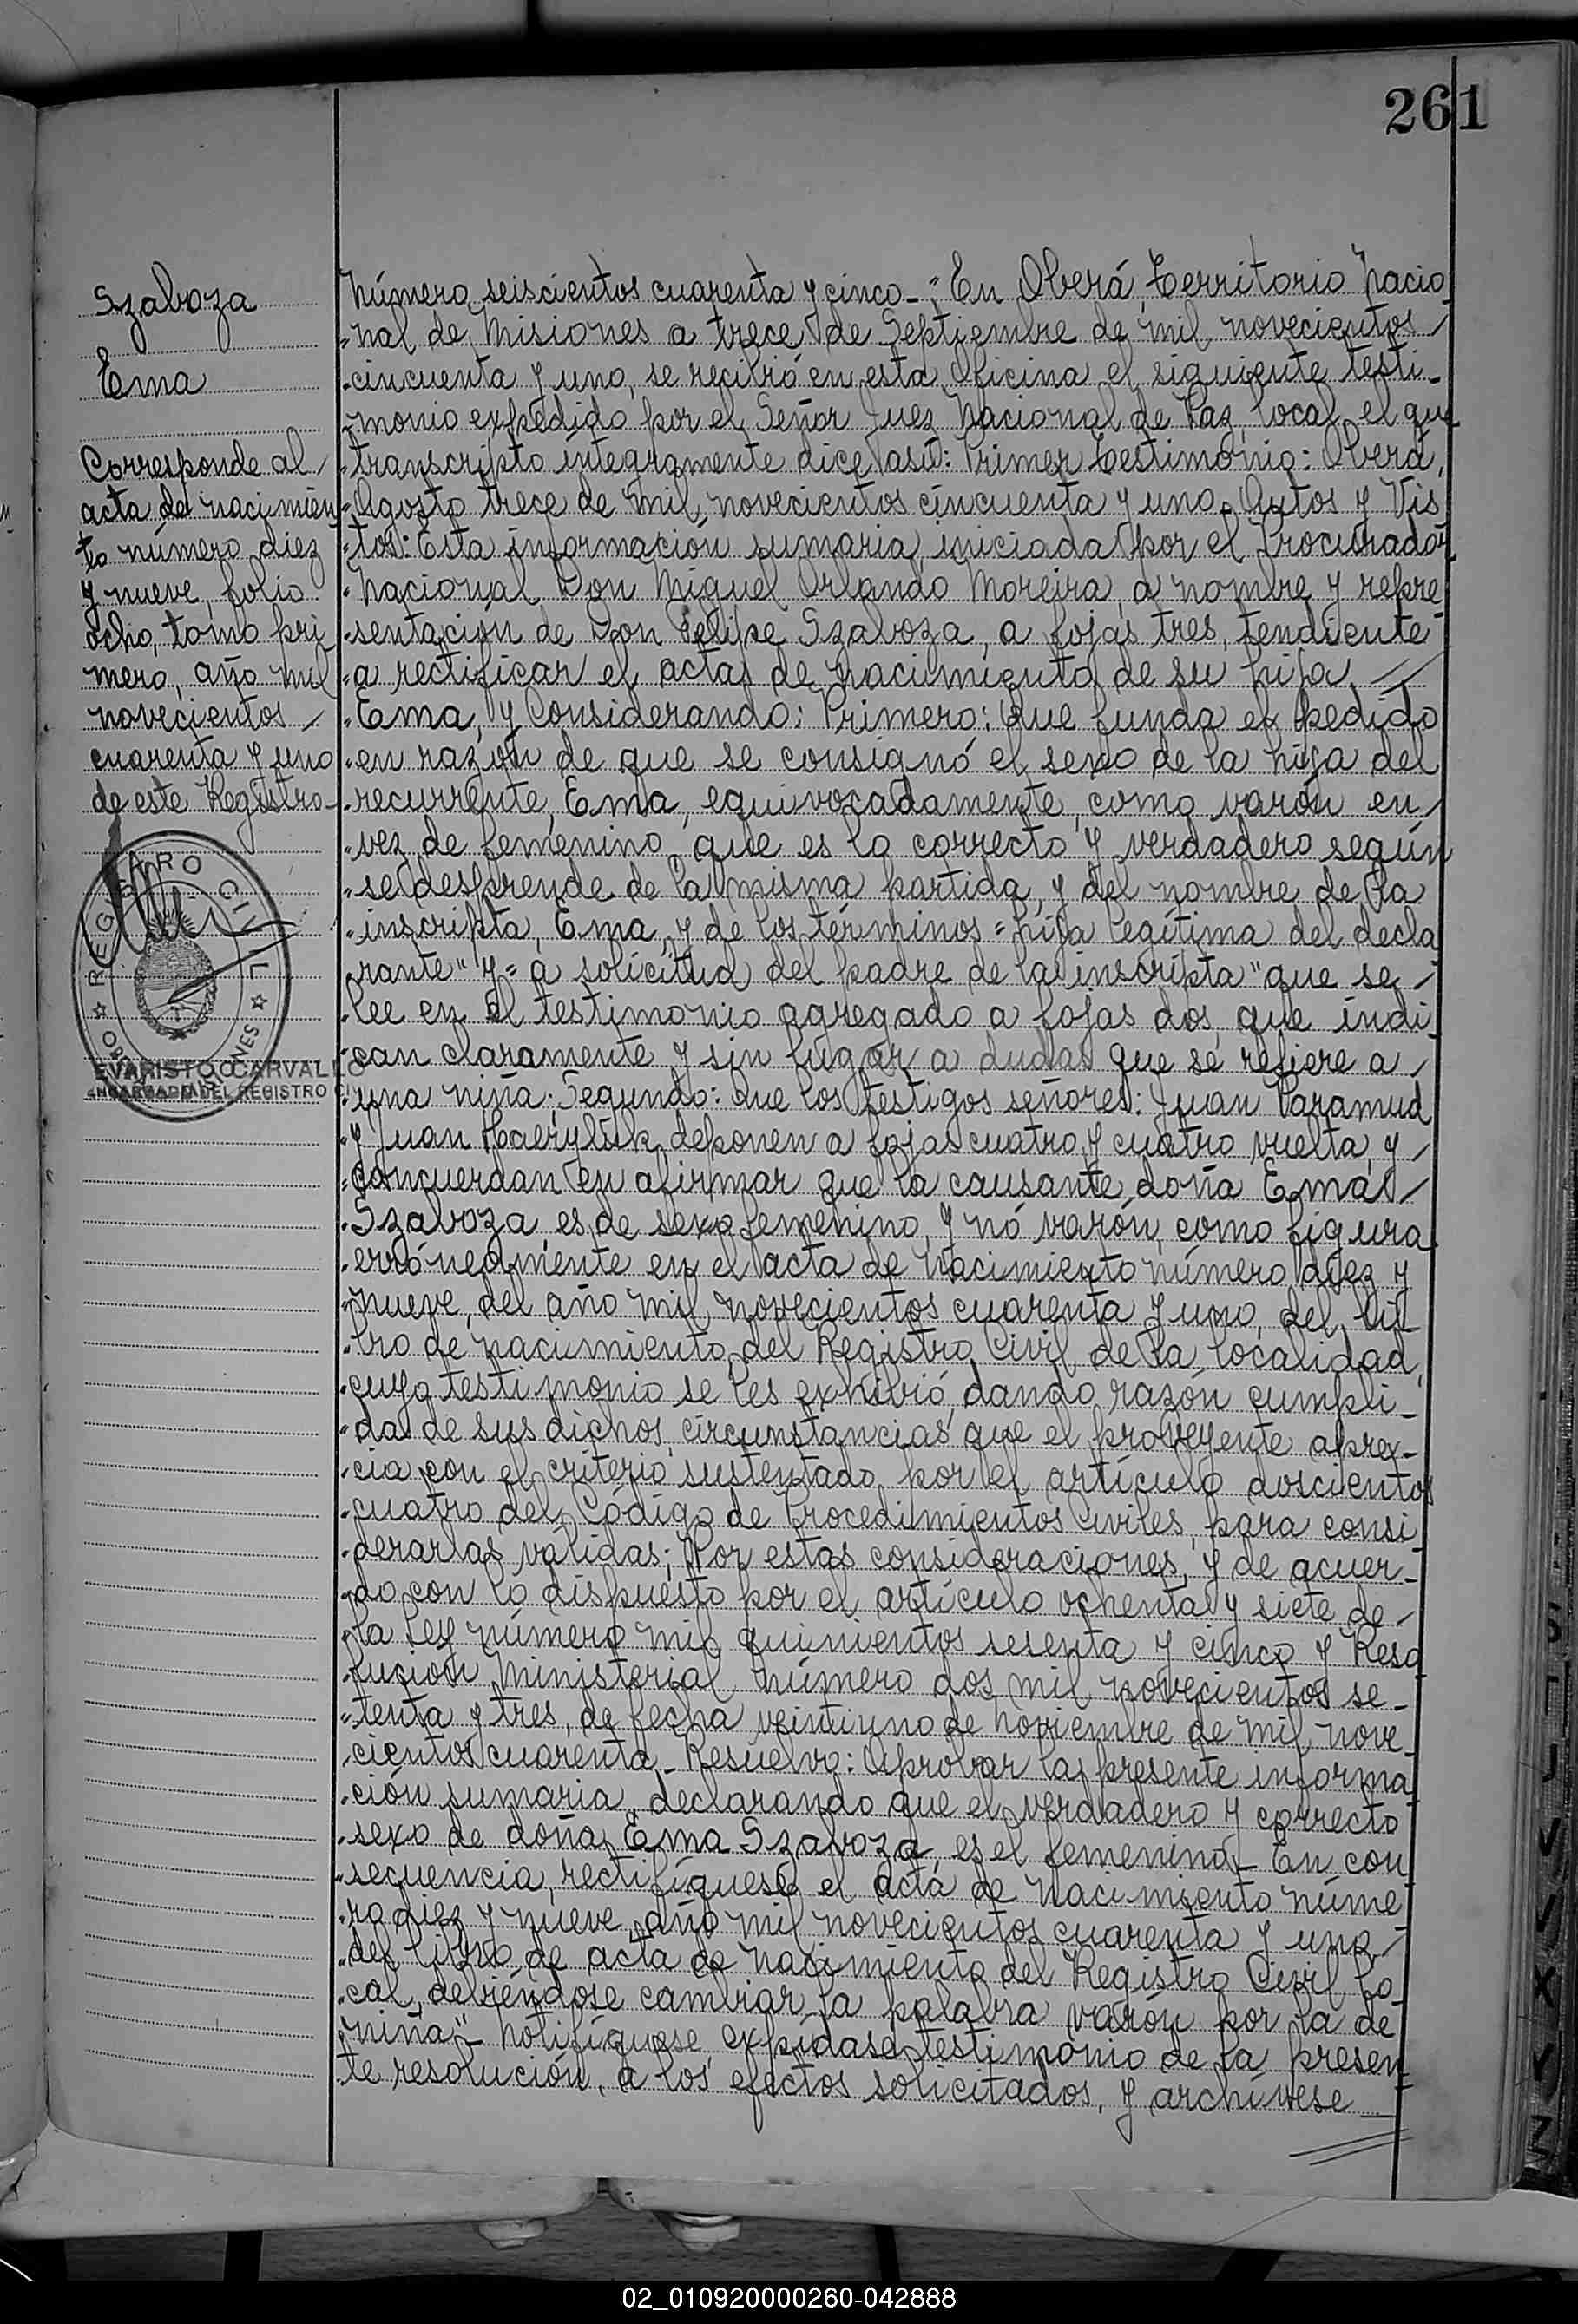 261
Szavoza
Ema
Corresponde al
acta de nacimien
to número diez
y nueve, folio
ocho, tomo pri
mero, año mil
novecientos
cuarenta y uno
de este Registro
REGISTRO CIVIL
EVARISTO CARVALLO
ENCARGADO DEL REGISTRO CI
Número seiscientos cuarenta y cinco - En Oberá, Territorio Nacio
nal de Misiones a trece de Septiembre de mil novecientos
cincuenta y uno, se recibió en esta Oficina el siguiente testi-
monio expedido por el Señor Juez Nacional de Paz local el que
transcripto íntegramente dice así: Primer Testimonio: Oberá,
Agosto trece de mil novecientos cincuenta y uno. Autos y Vis
tos: Esta información sumaria iniciada por el Procurador
Nacional Don Miguel Orlando Moreira, a nombre y repre
sentación de Don Felipe Szavoza, a fojas tres, tendiente
a rectificar el acta de nacimiento de su hija
Ema, y Considerando: Primero: Que funda el pedido
en razón de que se consignó el sexo de la hija del
recurrente, Ema, equivocadamente, como varón en
vez de femenino, que es lo correcto y verdadero según
se desprende de la misma partida, y del nombre de la
inscripta, Ema, y de los términos = hija legítima del decla
rante" y = a solicitud del padre de la inscripta" que se
lee en el testimonio agregado a fojas dos, que indi
can claramente y sin lugar a dudas que se refiere a
una niña; Segundo: Que los testigos señores: Juan Paramud
y Juan deponen a fojas cuatro y cuatro vuelta, y
concuerdan en afirmar que la causante, doña Ema
Szavoza, es de sexo femenino, y nó varón, como figura
erróneamente en el acta de Nacimiento número diez y
nueve, del año mil novecientos cuarenta y uno, del li-
bro de nacimiento del Registro Civil de la localidad,
cuyo testimonio se les exhivió, dando razón cumpli-
da de sus dichos, circunstancias que el proveyente aprex-
cia con el criterio sustentado por el artículo doscientos
cuatro del Código de Procedimientos Civiles, para consi
derarlas válidas; Por estas consideraciones, y de acuer-
do con lo dispuesto por el artículo ochenta y siete de
la Ley número mil quinientos sesenta y cinco y Reso
lución Ministerial número dos mil novecientos se-
tenta y tres, de fecha veintiuno de Noviembre de mil nove
cientos cuarenta - Resuelvo: Aprobar la presente informa
ción sumaria, declarando que el verdadero y correcto
sexo de doña Ema Szavoza, es el femenino - En con
secuencia, rectifíquese el acta de Nacimiento núme
ro diez y nueve, año mil novecientos cuarenta y uno,
del libro de acta de Nacimiento del Registro Civil lo-
cal, debiéndose cambiar la palabra varón por la de
niña" - Notifíquese expídase testimonio de la presen
te resolución, a los efectos solicitados, y archívese
02_010920000260-042888